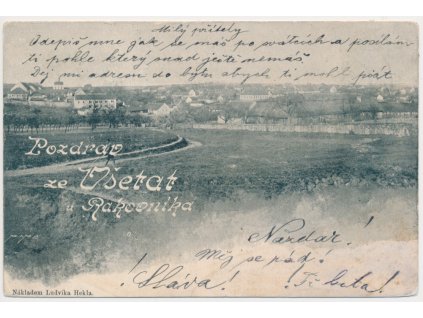 Milý přítely
Odepiš mne jak se máš po svátcích a posílám
ti pohle který snad ještě nemáš
Dej mi adresu do bytu abych ti mohl psát
Pozdrav
ze Všetat
u Rakovníka
Nazdar!
Měj se rád!
! Sláva!
Nákladem Ludvíka Hekla.